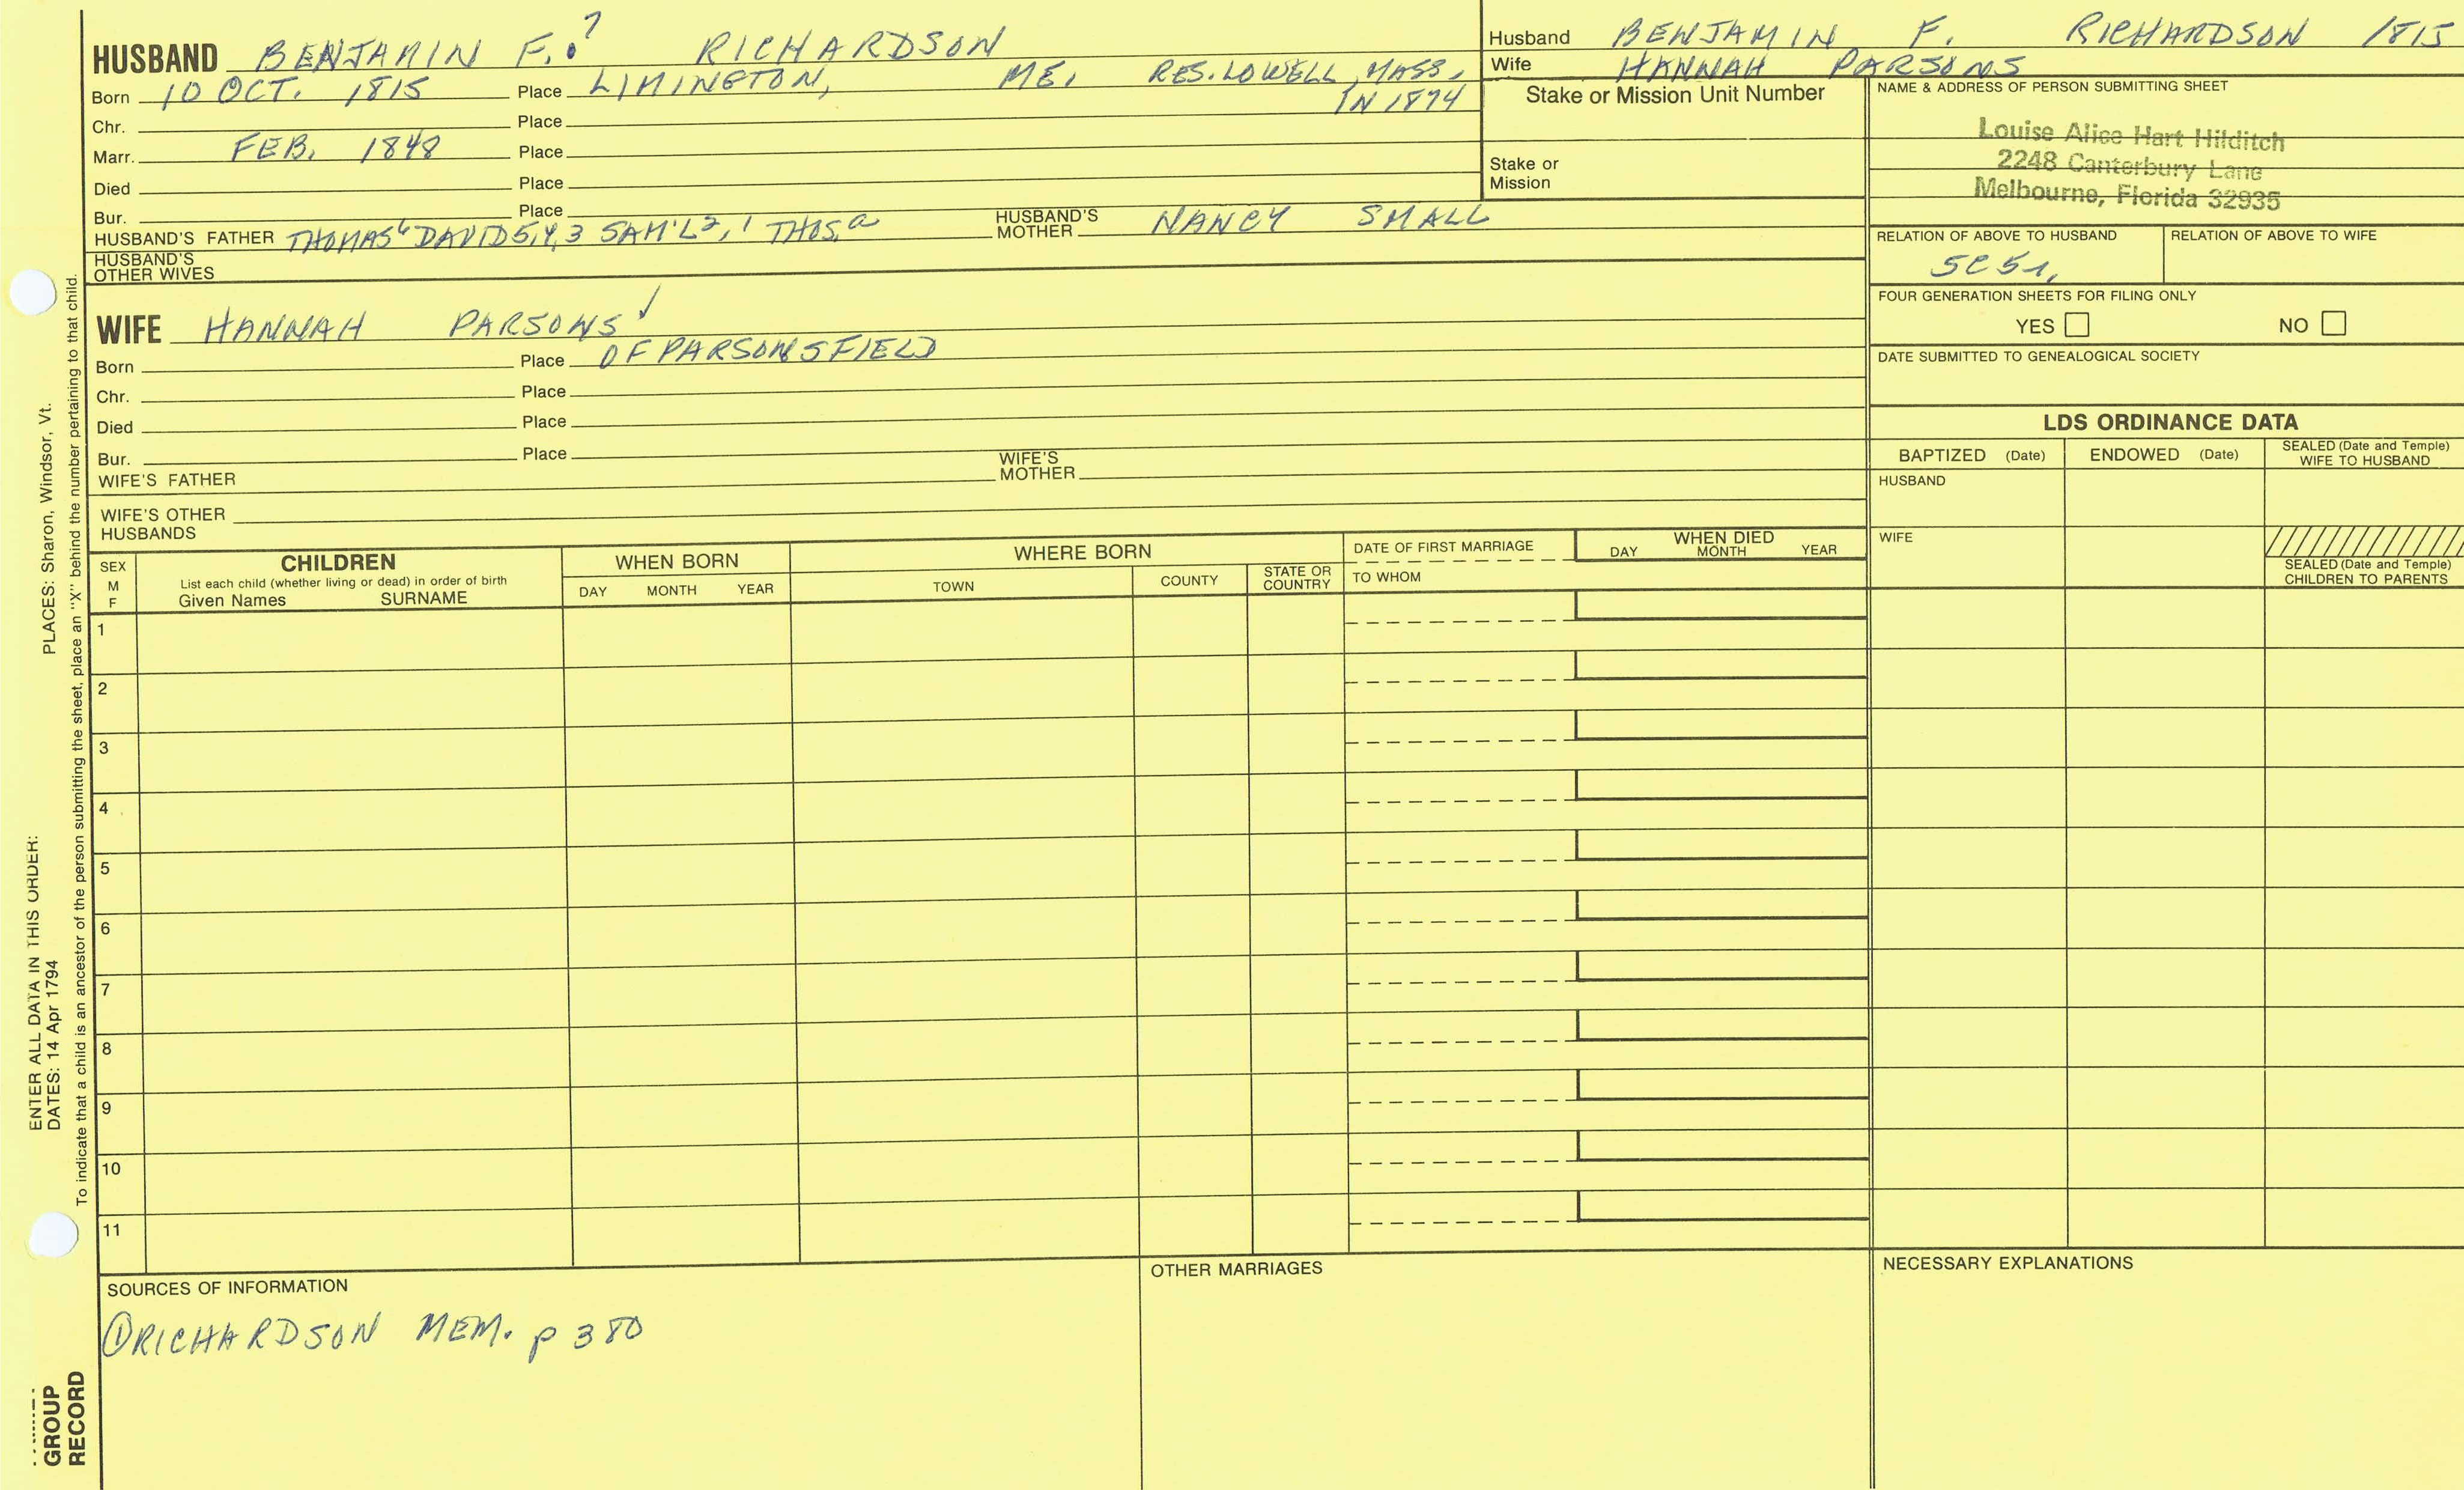 HUSBAND BENJAMIN F.? RICHARDSON
Born 10 OCT. 1815 Place LIMINGTON, ME. RES. LOWELL, MASS. IN 1874
Chr. Place
Marr. FEB. 1848 Place
Died Place
Bur. Place
HUSBAND'S FATHER THOMAS6 DAVID5,4,3 SAM'L2,1 THOS.a HUSBAND'S MOTHER NANCY SMALL
HUSBAND'S OTHER WIVES
WIFE HANNAH PARSONS ✓
Born Place OF PARSONSFIELD
Chr. Place
Died Place
Bur. Place
WIFE'S FATHER WIFE'S MOTHER
WIFE'S OTHER HUSBANDS
Husband BENJAMIN F. RICHARDSON 1815
Wife HANNAH PARSONS
Stake or Mission Unit Number
Stake or Mission
NAME & ADDRESS OF PERSON SUBMITTING SHEET
Louise Alice Hart Hilditch
2248 Canterbury Lane
Melbourne, Florida 32935
RELATION OF ABOVE TO HUSBAND RELATION OF ABOVE TO WIFE
5C5r.
FOUR GENERATION SHEETS FOR FILING ONLY
YES NO
DATE SUBMITTED TO GENEALOGICAL SOCIETY
LDS ORDINANCE DATA
BAPTIZED (Date) ENDOWED (Date) SEALED (Date and Temple) WIFE TO HUSBAND
HUSBAND
WIFE
SEALED (Date and Temple) CHILDREN TO PARENTS
SEX M F
CHILDREN
List each child (whether living or dead) in order of birth
Given Names SURNAME
WHEN BORN
DAY MONTH YEAR
WHERE BORN
TOWN COUNTY STATE OR COUNTRY
DATE OF FIRST MARRIAGE
TO WHOM
WHEN DIED
DAY MONTH YEAR
1
2
3
4
5
6
7
8
9
10
11
SOURCES OF INFORMATION
① RICHARDSON MEM. p 380
OTHER MARRIAGES
NECESSARY EXPLANATIONS
ENTER ALL DATA IN THIS ORDER:
DATES: 14 Apr 1794 PLACES: Sharon, Windsor, Vt.
To indicate that a child is an ancestor of the person submitting the sheet, place an "X" behind the number pertaining to that child.
GROUP
RECORD